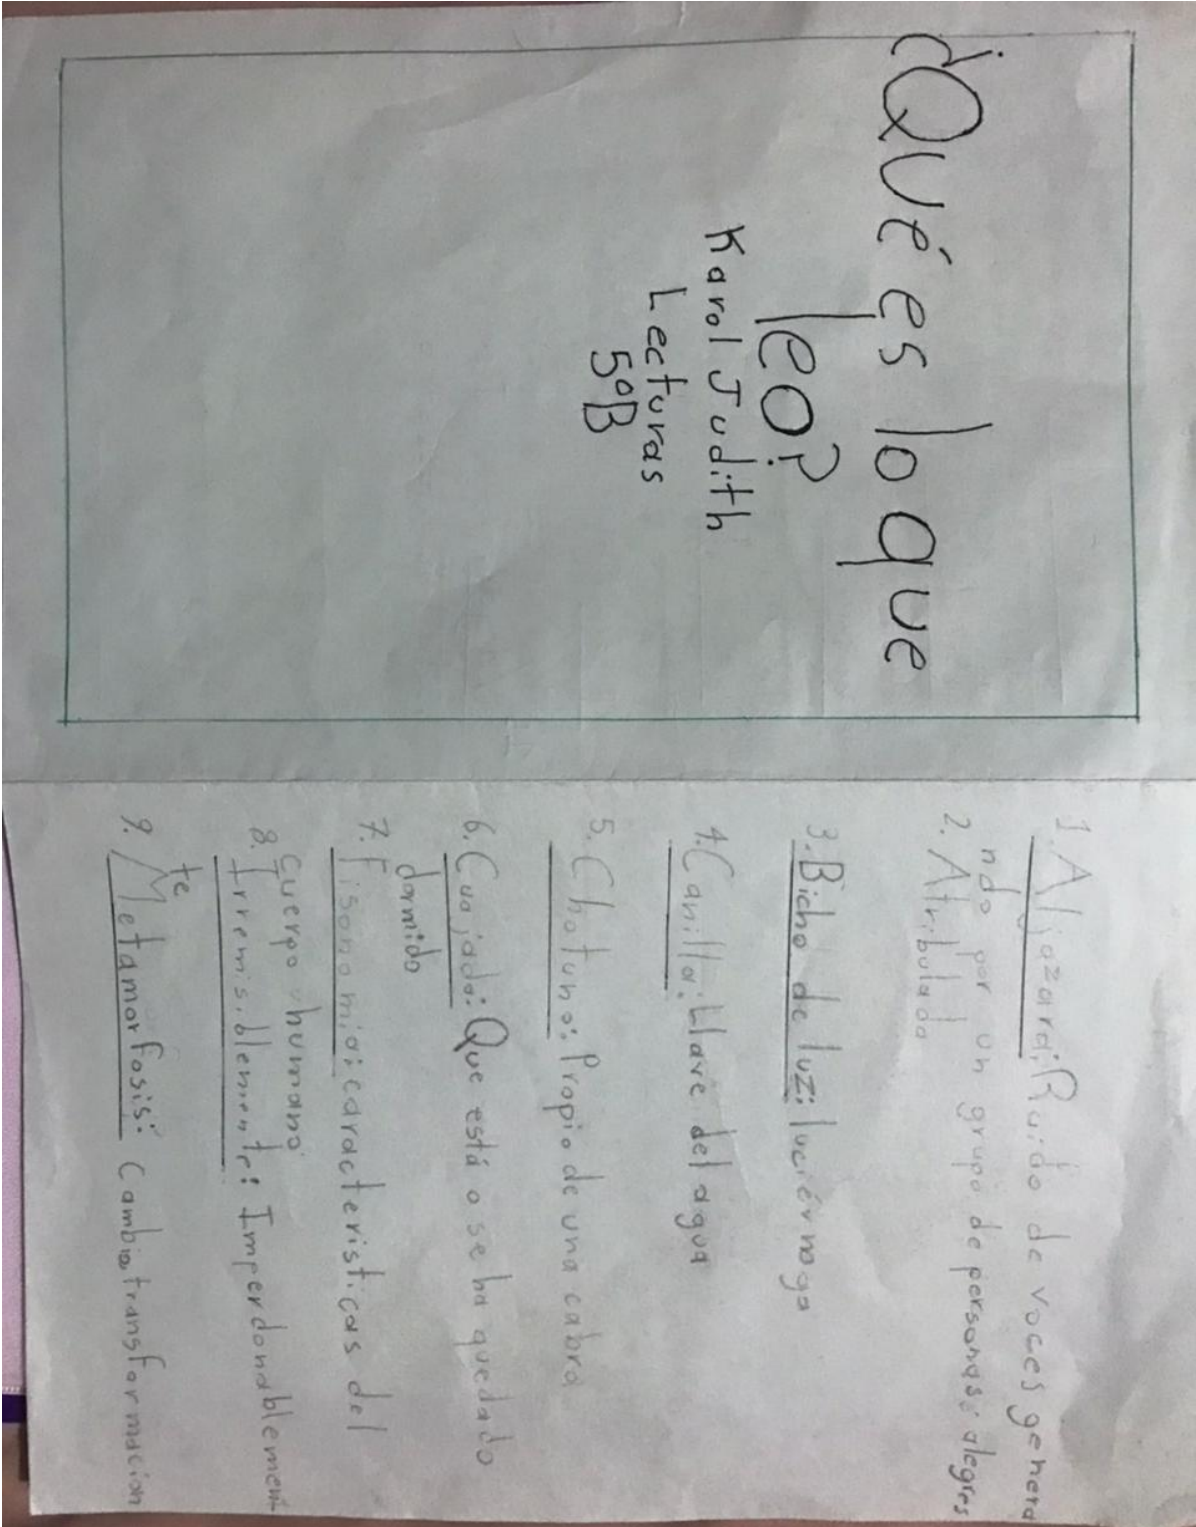 ¿Qué es lo que
leo?
Karol Judith
Lecturas
5°B
1. Algazara: Ruido de voces genera
ndo por un grupo de personas alegres
2. Atribulada
3. Bicho de luz: luciérnaga
4. Canilla: Llave del agua
5. Chotuno: Propio de una cabra
6. Cuajado: Que está o se ha quedado
dormido
7. Fisonomía: características del
cuerpo humano
8. Irremisiblemente: Imperdonablemen-
te
9. Metamorfosis: Cambio, transformación